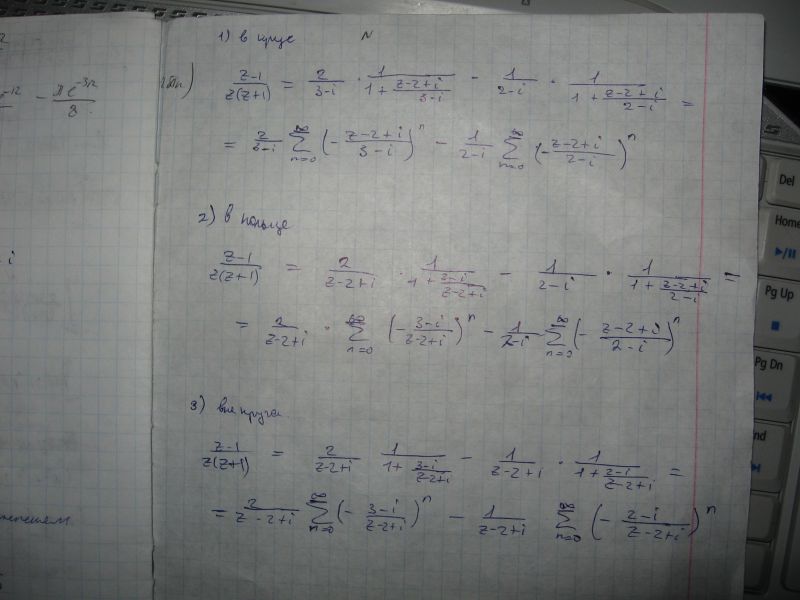 1) в круге N
e^{-12} - \frac{\pi e^{-3/2}}{8}
\frac{z-1}{z(z+1)} = \frac{2}{3-i} \cdot \frac{1}{1+\frac{z-2+i}{3-i}} - \frac{1}{2-i} \cdot \frac{1}{1+\frac{z-2+i}{2-i}} =
= \frac{2}{3-i} \sum_{n=0}^{\infty} \left(-\frac{z-2+i}{3-i}\right)^n - \frac{1}{2-i} \sum_{n=0}^{\infty} \left(-\frac{z-2+i}{2-i}\right)^n
2) в кольце
i
\frac{z-1}{z(z+1)} = \frac{2}{z-2+i} \cdot \frac{1}{1+\frac{3-i}{z-2+i}} - \frac{1}{2-i} \cdot \frac{1}{1+\frac{z-2+i}{2-i}} =
= \frac{2}{z-2+i} \cdot \sum_{n=0}^{\infty} \left(-\frac{3-i}{z-2+i}\right)^n - \frac{1}{2-i} \sum_{n=0}^{\infty} \left(-\frac{z-2+i}{2-i}\right)^n
3) вне круга.
\frac{z-1}{z(z+1)} = \frac{2}{z-2+i} \frac{1}{1+\frac{3-i}{z-2+i}} - \frac{1}{z-2+i} \cdot \frac{1}{1+\frac{2-i}{z-2+i}} =
= \frac{2}{z-2+i} \sum_{n=0}^{\infty} \left(-\frac{3-i}{z-2+i}\right)^n - \frac{1}{z-2+i} \cdot \sum_{n=0}^{\infty} \left(-\frac{2-i}{z-2+i}\right)^n
Del
Home
Pg Up
Pg Dn